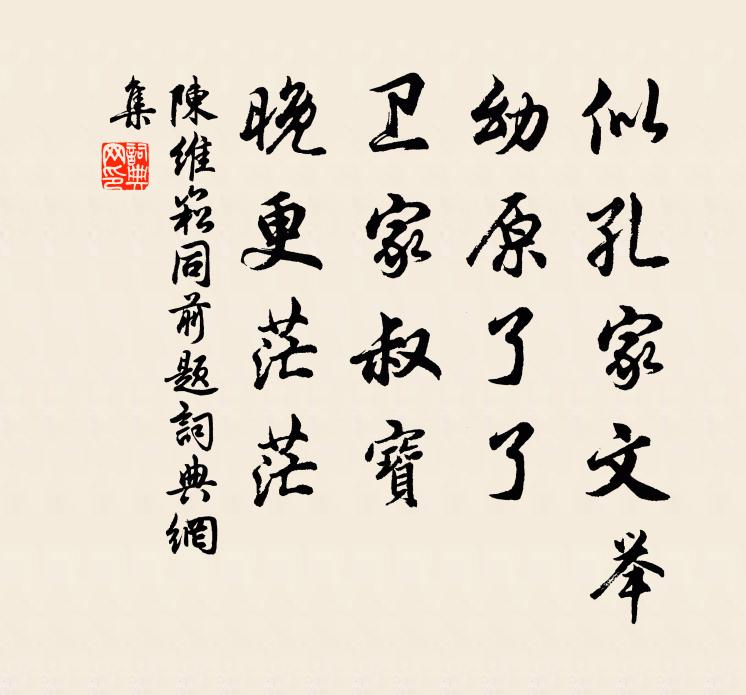 似孔家文举
幼原了了
卫家叔寶
晚更茫茫
陳維崧同前題詞典網
集
詞典
网印